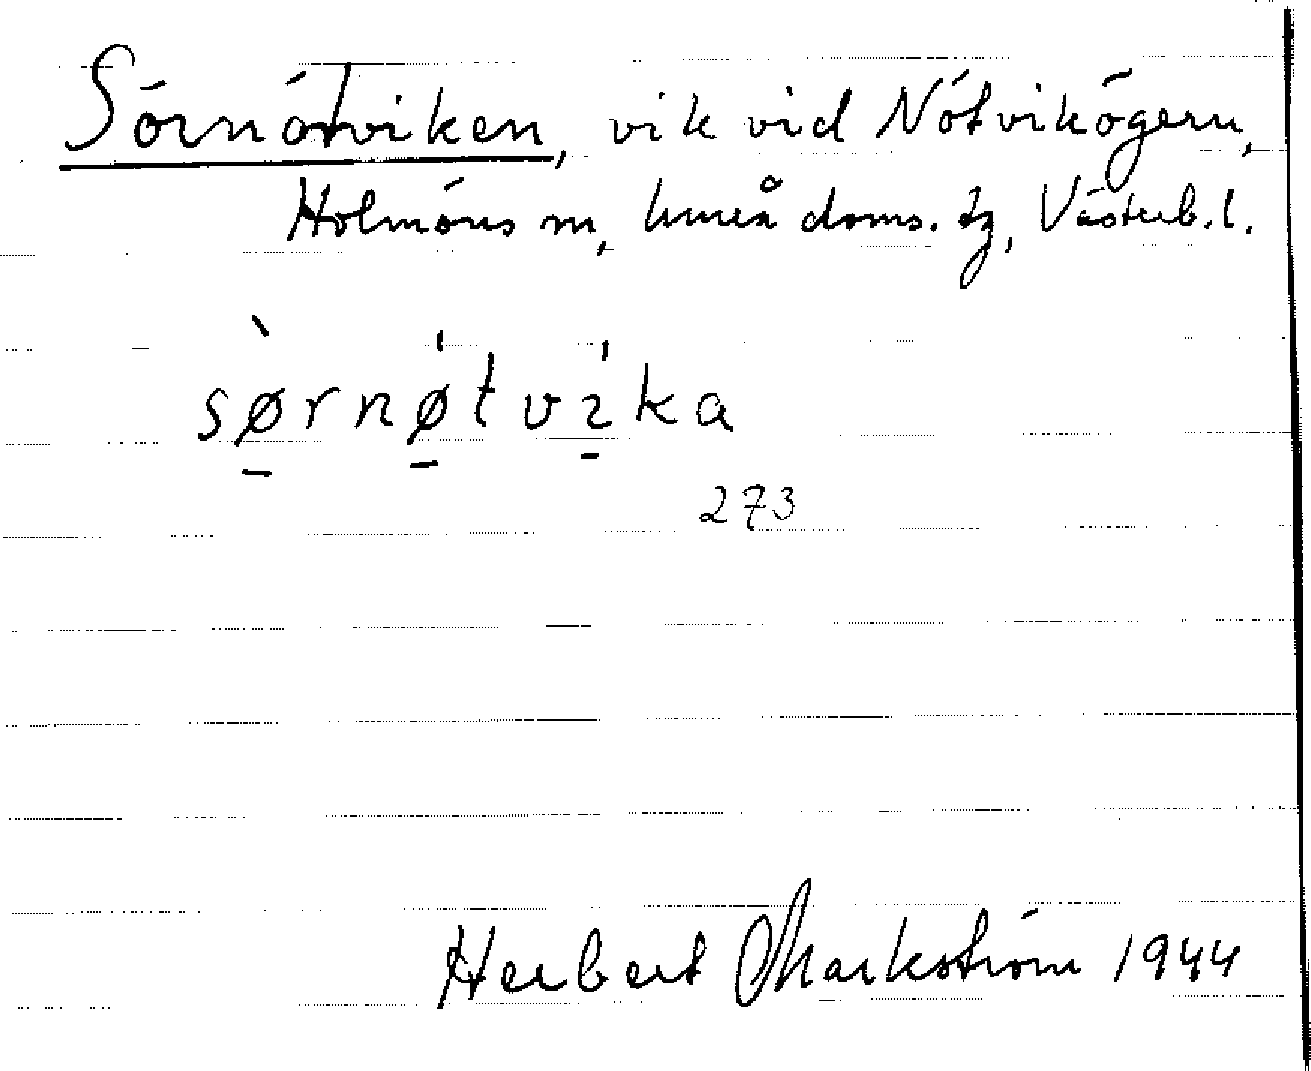 Sörnötviken, vik vid Nötvikögern,
Holmöns sn, Umeå doms. tg, Västerb. l.
sø̀rnøtvika
273
Herbert Markström 1944